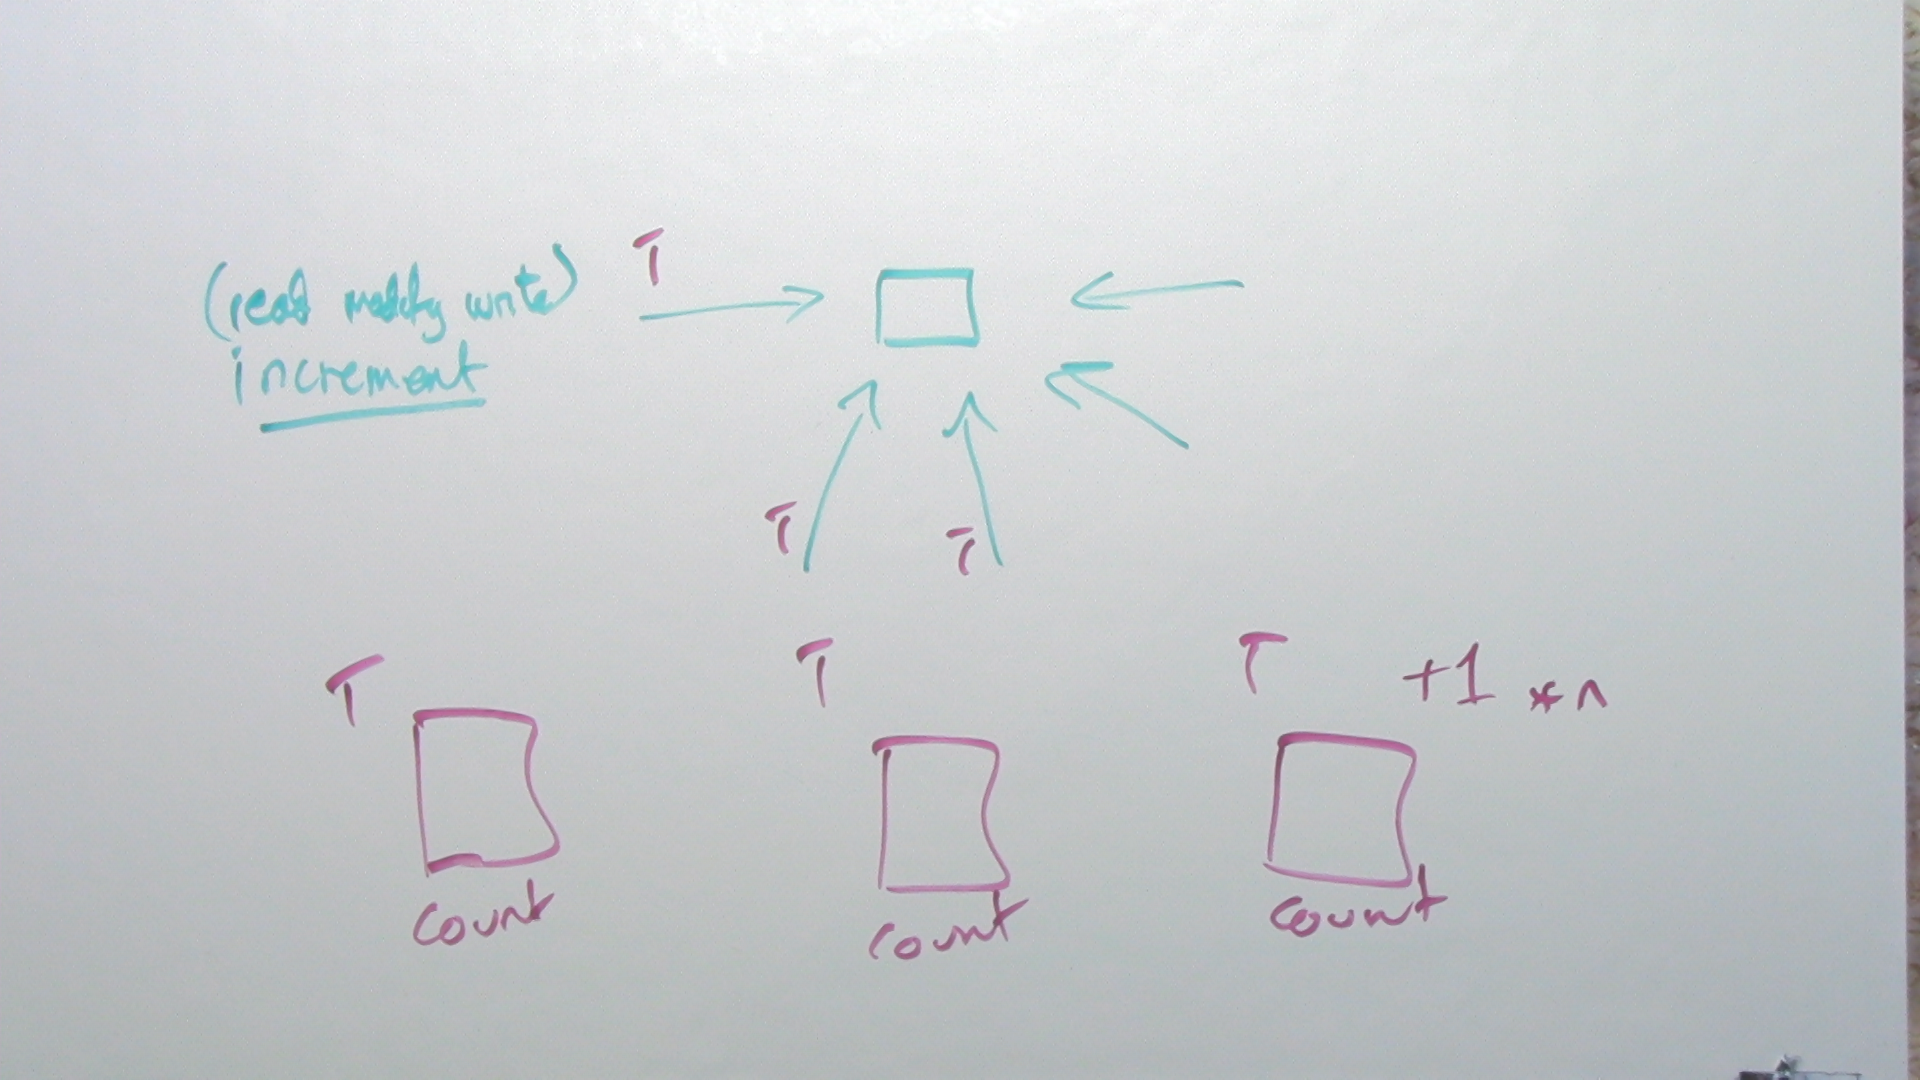 T
(read modify write)
increment
T
T
T
T
T
+1 * n
count
count
count